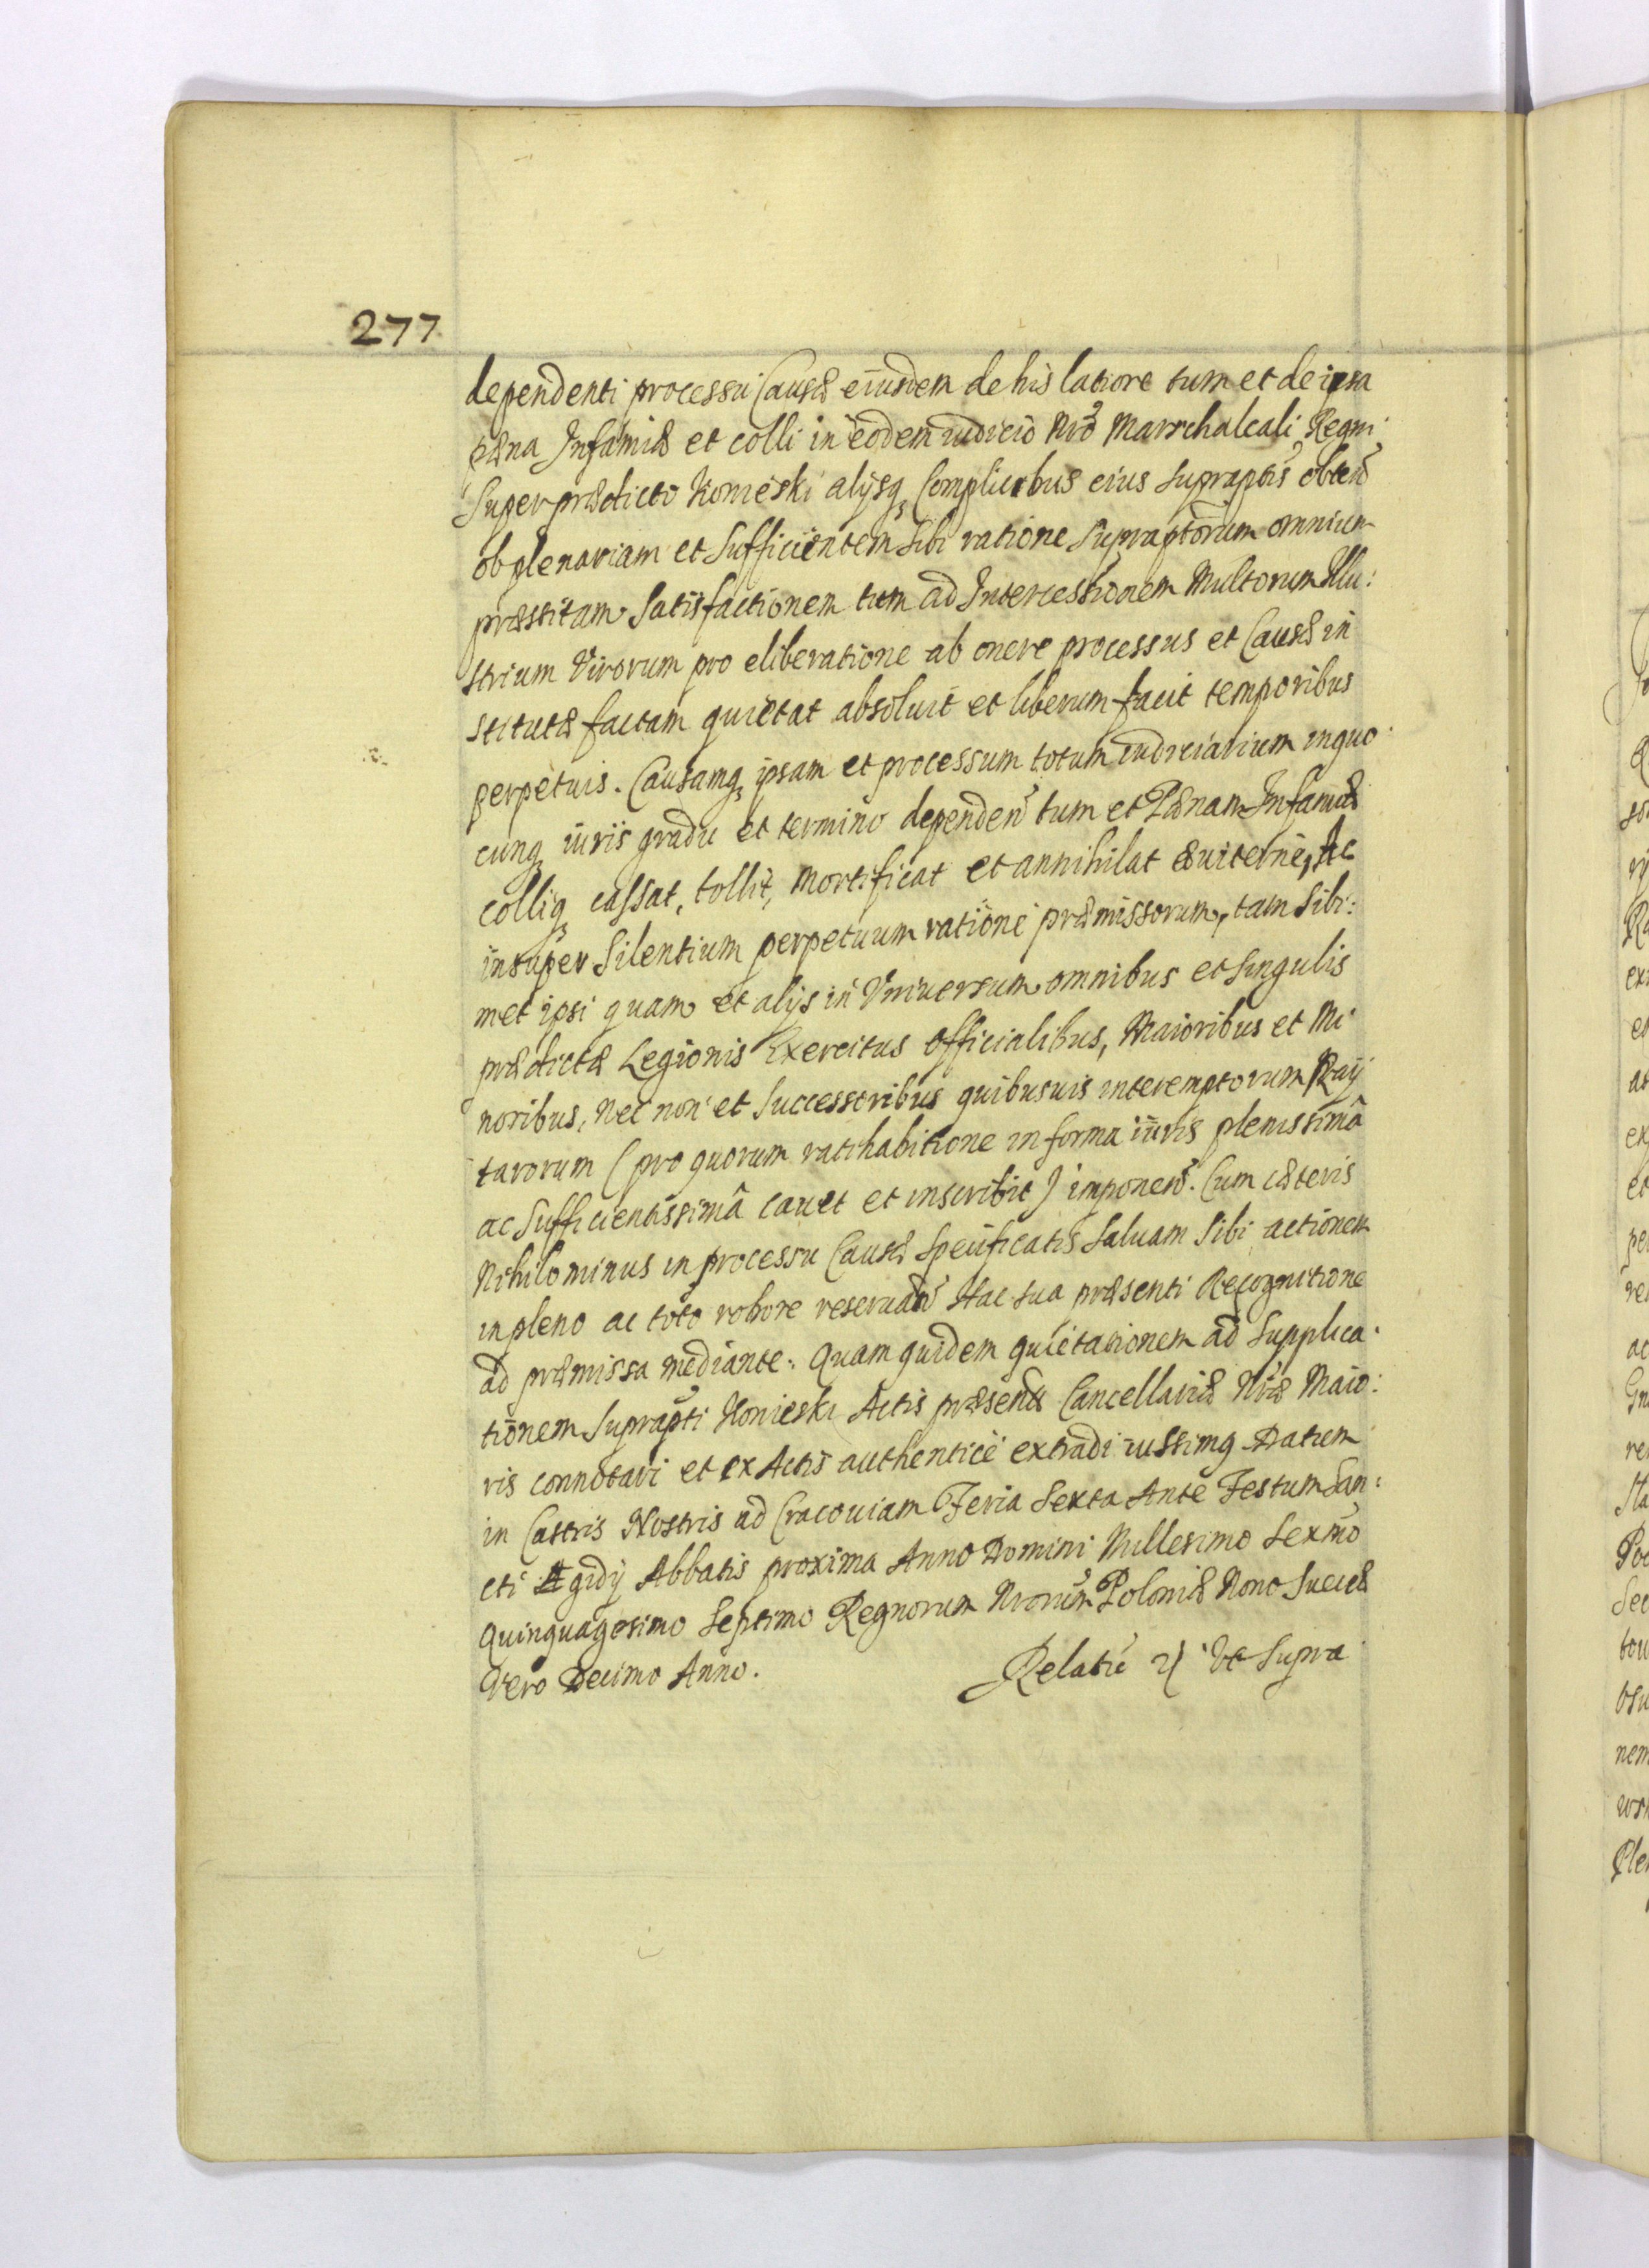 277
dependenti processu Causæ eiusdem de his latiore tum et de ipsa
pæna Infamiæ et colli in eodem iudicio Nrõ Marschalcali Regni
Super prædicto Komeski alijsq, Complicibus eius supraptis obten̄
ob plenariam et Sufficientem sibi ratione Supraptorum omnium
præstitam Satisfactionem tum ad Intercessionem Multorum Illu:
strium Virorum pro eliberatione ab onere processus et Causæ in
stitutæ factam quietat absoluit et liberum facit temporibus
perpetuis. Causamq, ipsam et processum totum iudiciarium inquo
cunq, iuris gradu et termino dependen̄ tum et Pænam Infamiæ
colliq, cassat, tollit, mortificat et annihilat æuiternè, Ac
insuper Silentium perpetuum ratione præmissorum, tam Sibi:
met ipsi quam et alijs in Vniuersum omnibus et Singulis
prædictæ Legionis Exercitus Officialibus, Maioribus et Mi
noribus, Nec non et Successoribus quibusuis interemptorum Ray
tarorum (pro quorum ratihabitione in forma iuris plenissimâ
ac Sufficientissimâ cauet et inscribit) imponen̄. Cum cæteris
Nihilominus in processu Causæ Specificatis Saluam Sibi actionem
in pleno ac toto robore reseruan̄ Hac sua præsenti Recognitione
ad præmissa mediante: Quam quidem quietationem ad Supplica
tionem Suprapti Konieski Actis præsentis Cancellariæ Nræ Maio:
ris connotari et ex Actis authenticè extradi iussimq Datum
in Castris Nostris ad Cracouiam Feria Sexta Ante Festum San:
cti Ægidij Abbatis proxima Anno Domini Millesimo Sexmo
Quinquagesimo Septimo Regnorum Nrorum Poloniæ Nono Sueciæ
Vero Decimo Anno.
Relatio ut Supra